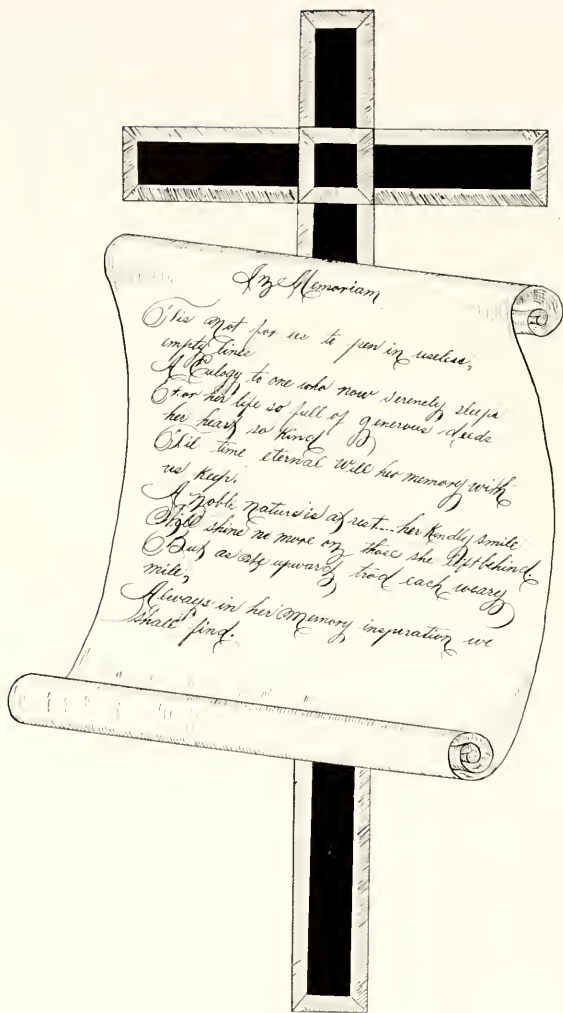 In Memoriam
'Tis not for us to pen in useless,
empty lines
A Eulogy to one who now serenely sleeps
For her life so full of generous deeds
her heart so kind
'Til time eternal will her memory with
us keep.
A noble nature is at rest.... her kindly smile
Will shine no more on those she left behind.
But as she upward, trod each weary
mile,
Always in her memory insperation we
shall find.